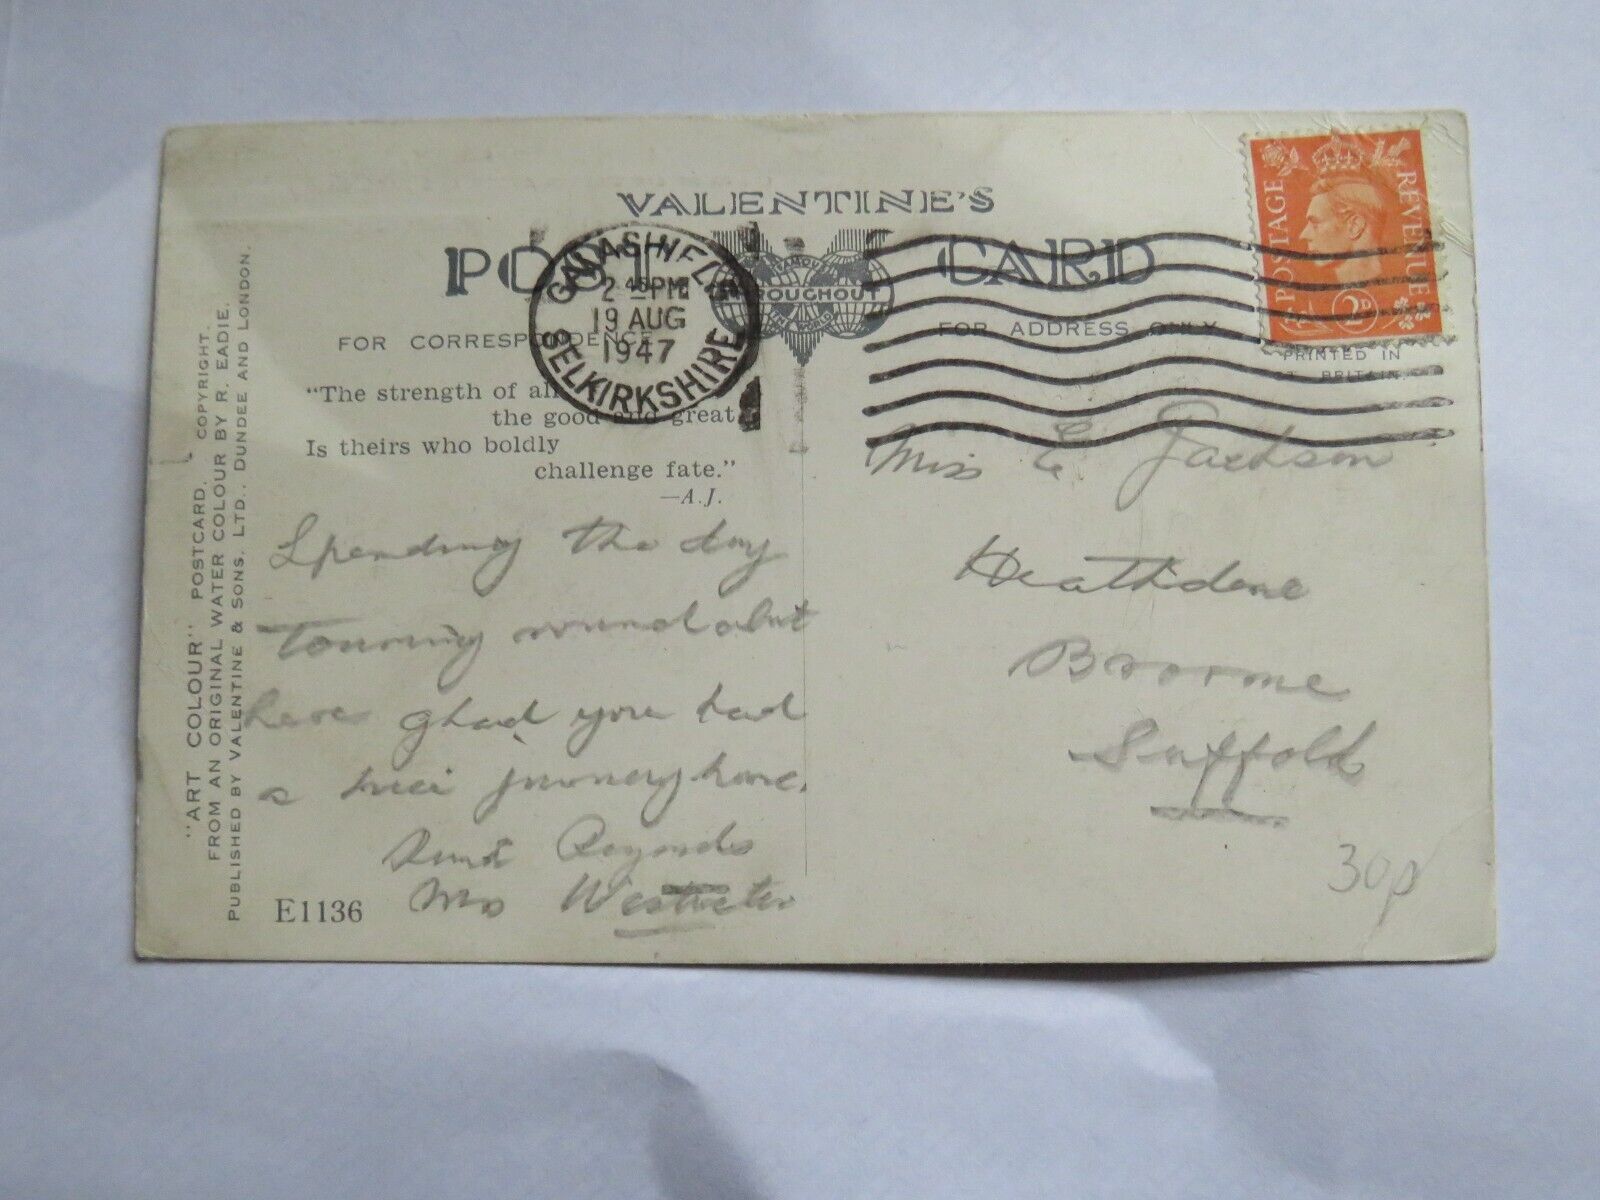 VALENTINE'S
POST CARD
FAMOUS
THROUGHOUT
THE WORLD
GALASHIELS
2 45 PM
19 AUG
1947
SELKIRKSHIRE
POSTAGE REVENUE
2D
FOR CORRESPONDENCE
FOR ADDRESS ONLY
PRINTED IN
GT BRITAIN.
"The strength of all
the good and great,
Is theirs who boldly
challenge fate."
—A.J.
Spending the day
Touring round about
here glad you had
a nice journey home.
Mrs
Miss E Jackson
Heathdene
Broome
Suffolk
30p
"ART COLOUR" POSTCARD. COPYRIGHT.
FROM AN ORIGINAL WATER COLOUR BY R. EADIE.
PUBLISHED BY VALENTINE & SONS. LTD., DUNDEE AND LONDON.
E1136